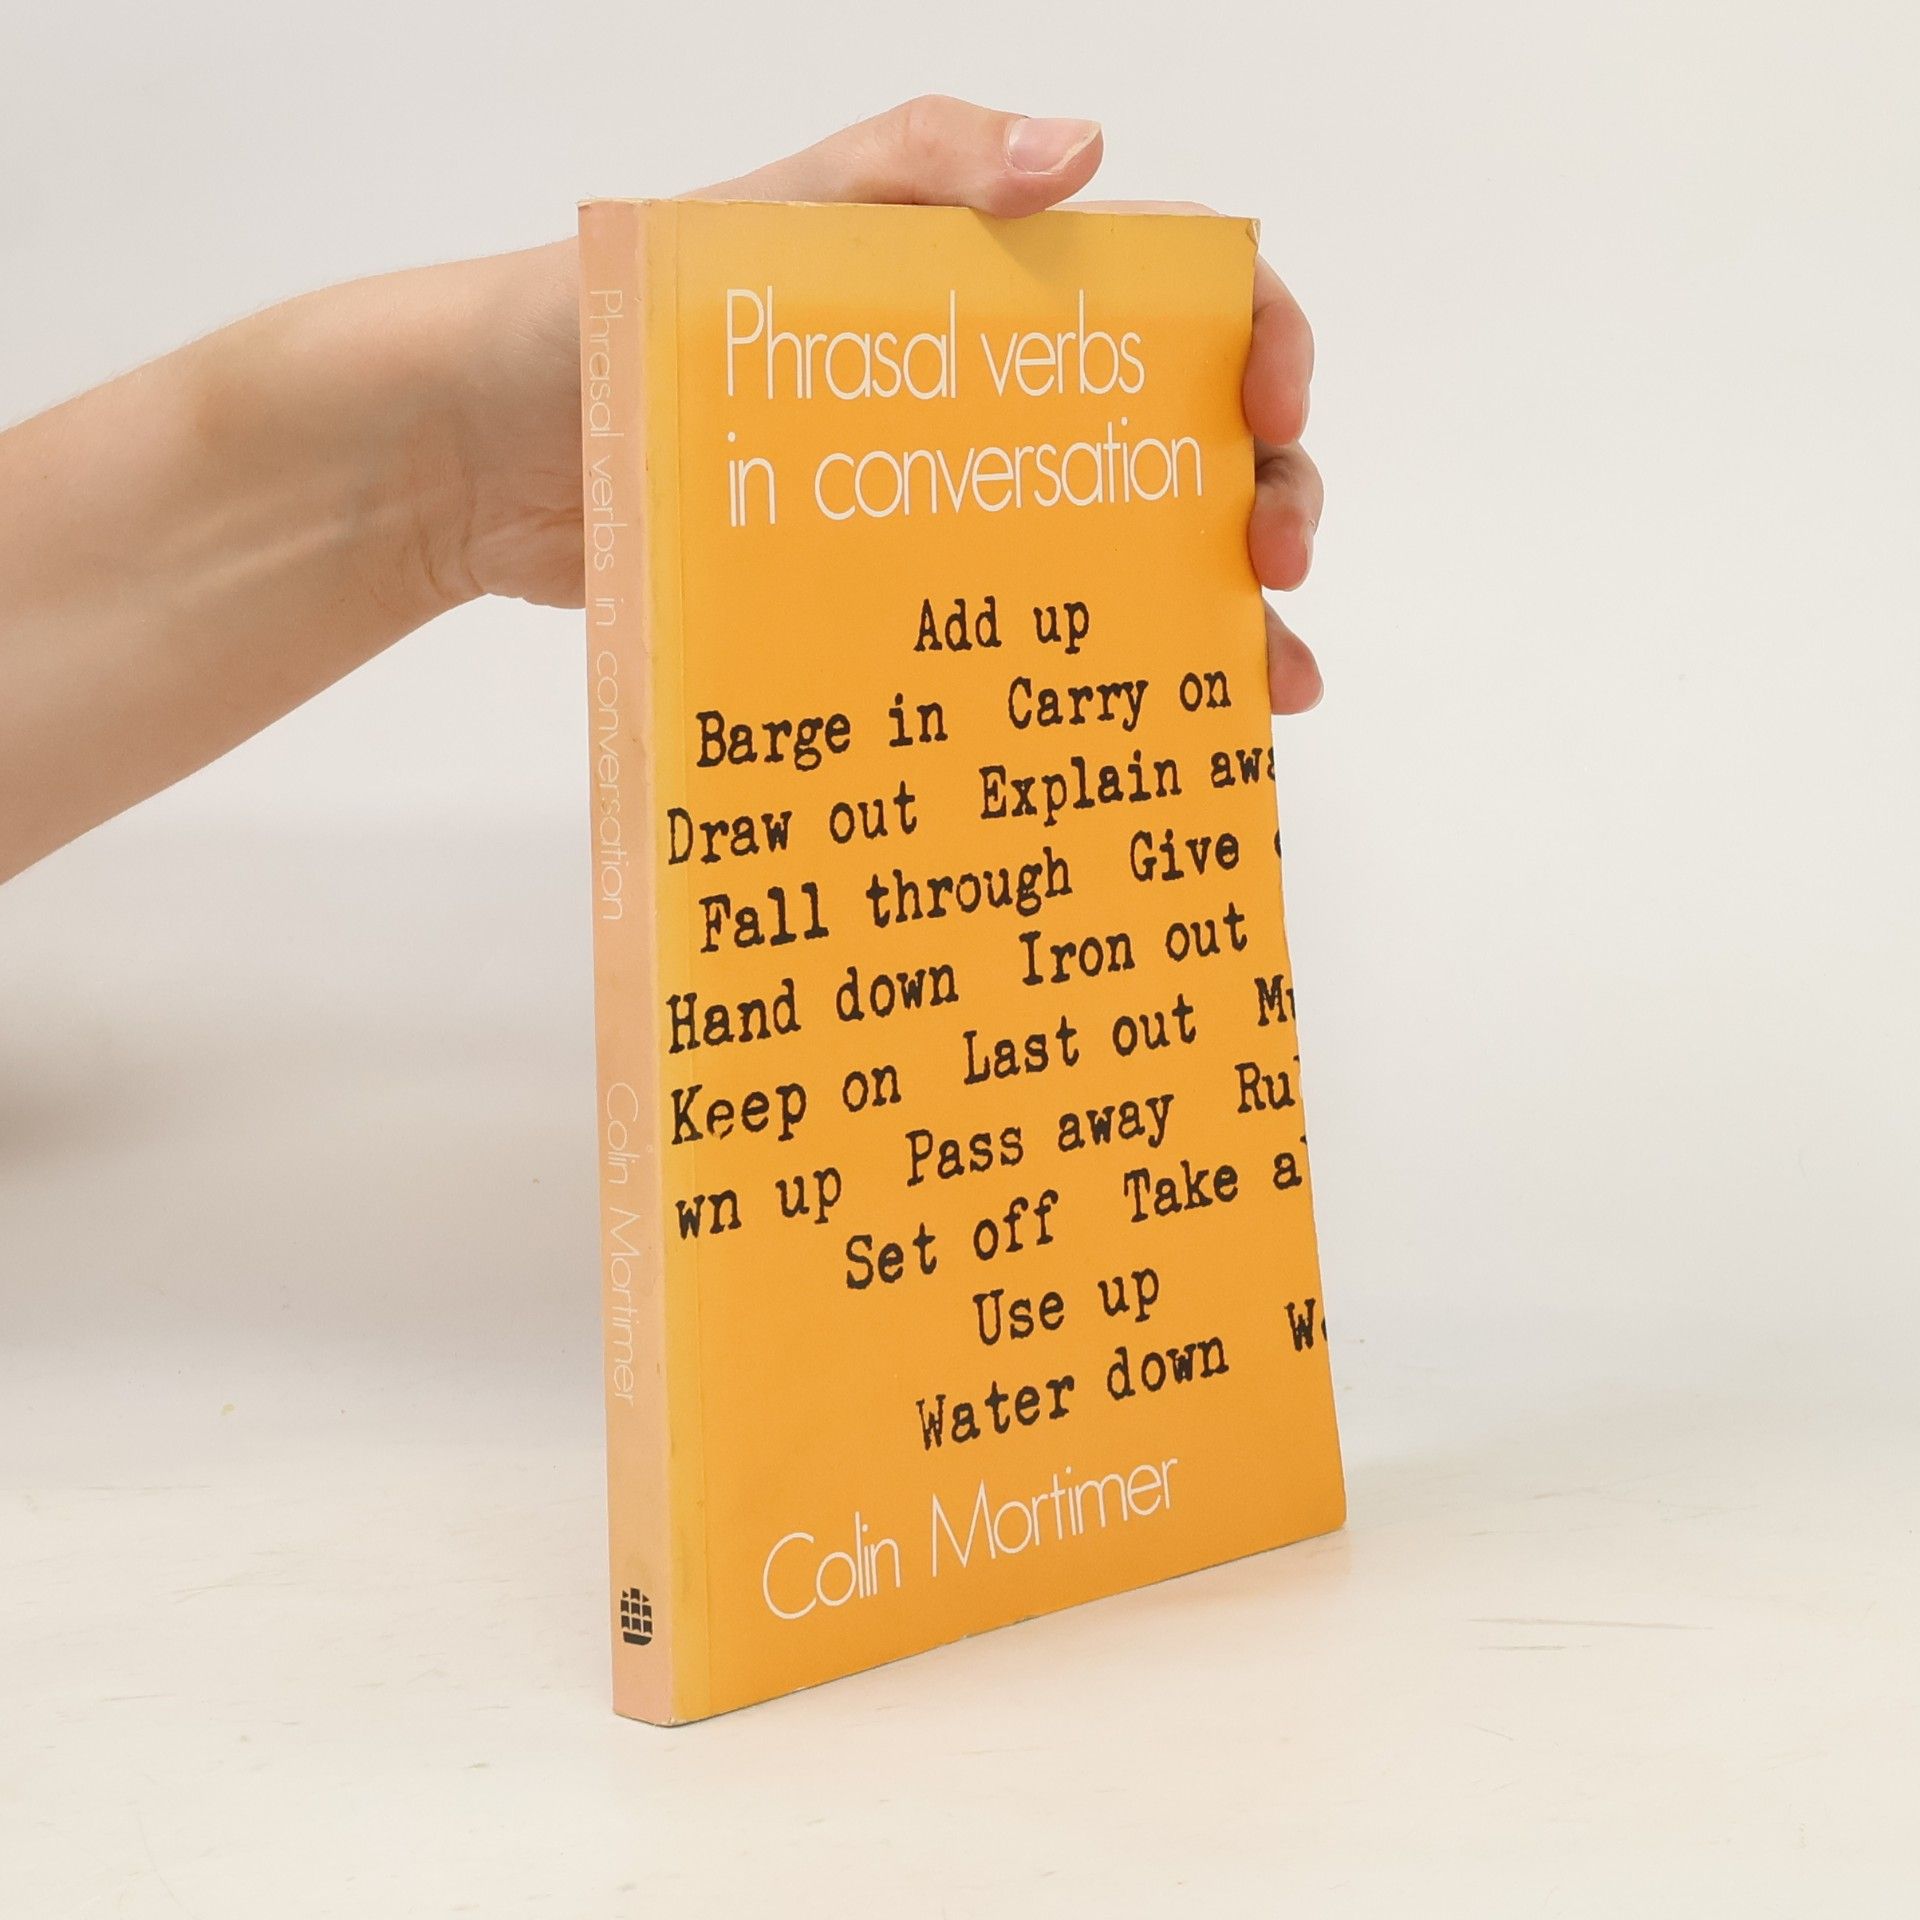 Phrasal verbs in conversation Colin Mortimer
Phrasal verbs
in conversation
Add up
Barge in Carry on
Draw out Explain
Fall through Give
Hand down Iron out
Keep on Last out
wn up Pass away
Set off Take
Use up
Water down
Colin Mortimer